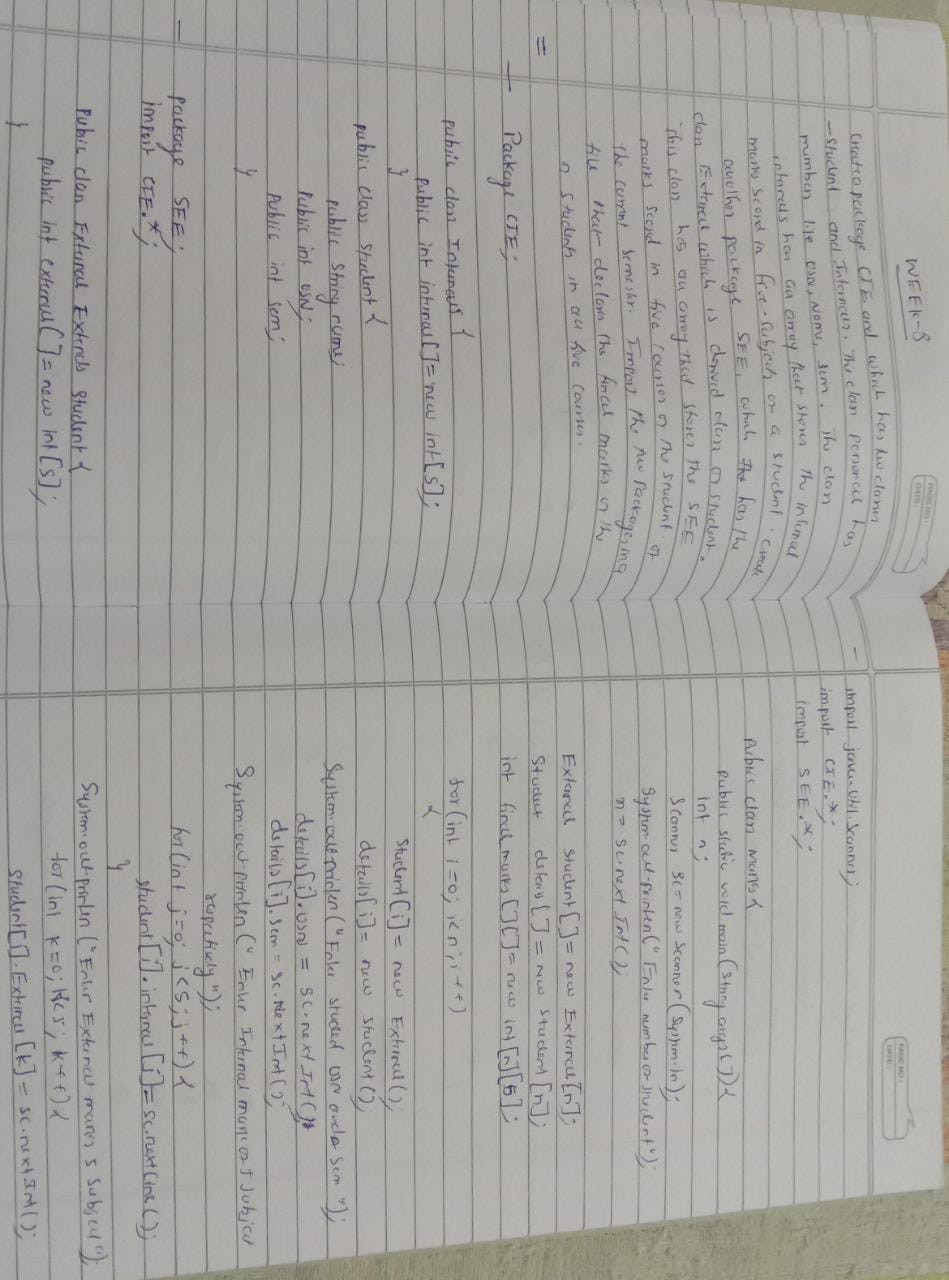 WEEK-8
Create a package CIE and which has two classes
- Student and Internals. The class personal has
number like USN, Name, sem. The class
internals has an array that stores the internal
marks scored in five subjects of a student. create
another package SEE, which has the
class External which is derived class of student.
This class has an array that stores the SEE
marks scored in five courses of the student of
the current semester. Import the two packages in a
file that declares the final marks of the
n students in all five courses.
=
— Package CIE;
public class Internals {
public int internal[] = new int[5];
}
public class student {
public string name;
Public int USN;
Public int sem;
}
— package SEE;
import CIE.*;
public class External Extends Student {
public int external[] = new int[5];
}
PAGE NO:
DATE:
- import java.util.Scanner;
import CIE.*;
import SEE.*;
Public class marks {
public static void main(String args[]) {
int n;
Scanner sc = new Scanner(System.in);
System.out.println("Enter number of student");
n = sc.next Int();
External student[] = new External[n];
Student details[] = new student[n];
int final marks[][] = new int[n][5];
for(int i=0; i<n; i++)
{
Student[i] = new External();
details[i] = new student();
System.out.println("Enter student usn and sem");
details[i].usn = sc.next Int();
details[i].sem = sc.Next Int();
System.out.println("Enter Internal marks of 5 subject
respectively");
for(int j=0; j<5; j++) {
student[i].internal[j] = sc.nextLine();
}
System.out.println("Enter External marks 5 subject");
for(int k=0; k<5; k++) {
student[i].External[k] = sc.nextInt();
PAGE NO:
DATE: